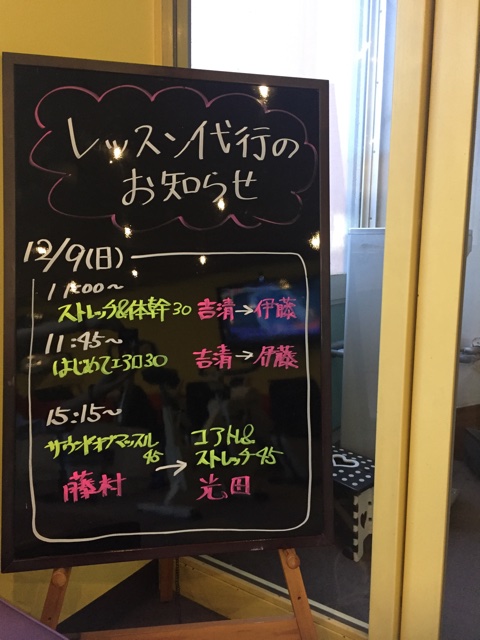 レッスン代行の
お知らせ
12/9(日)
11:00～
ストレッチ&体幹30 吉清→伊藤
11:45～
はじめてエアロ30 吉清→伊藤
15:15～
サウンドオブマッスル45 → コアトレ&ストレッチ45
藤村 光田